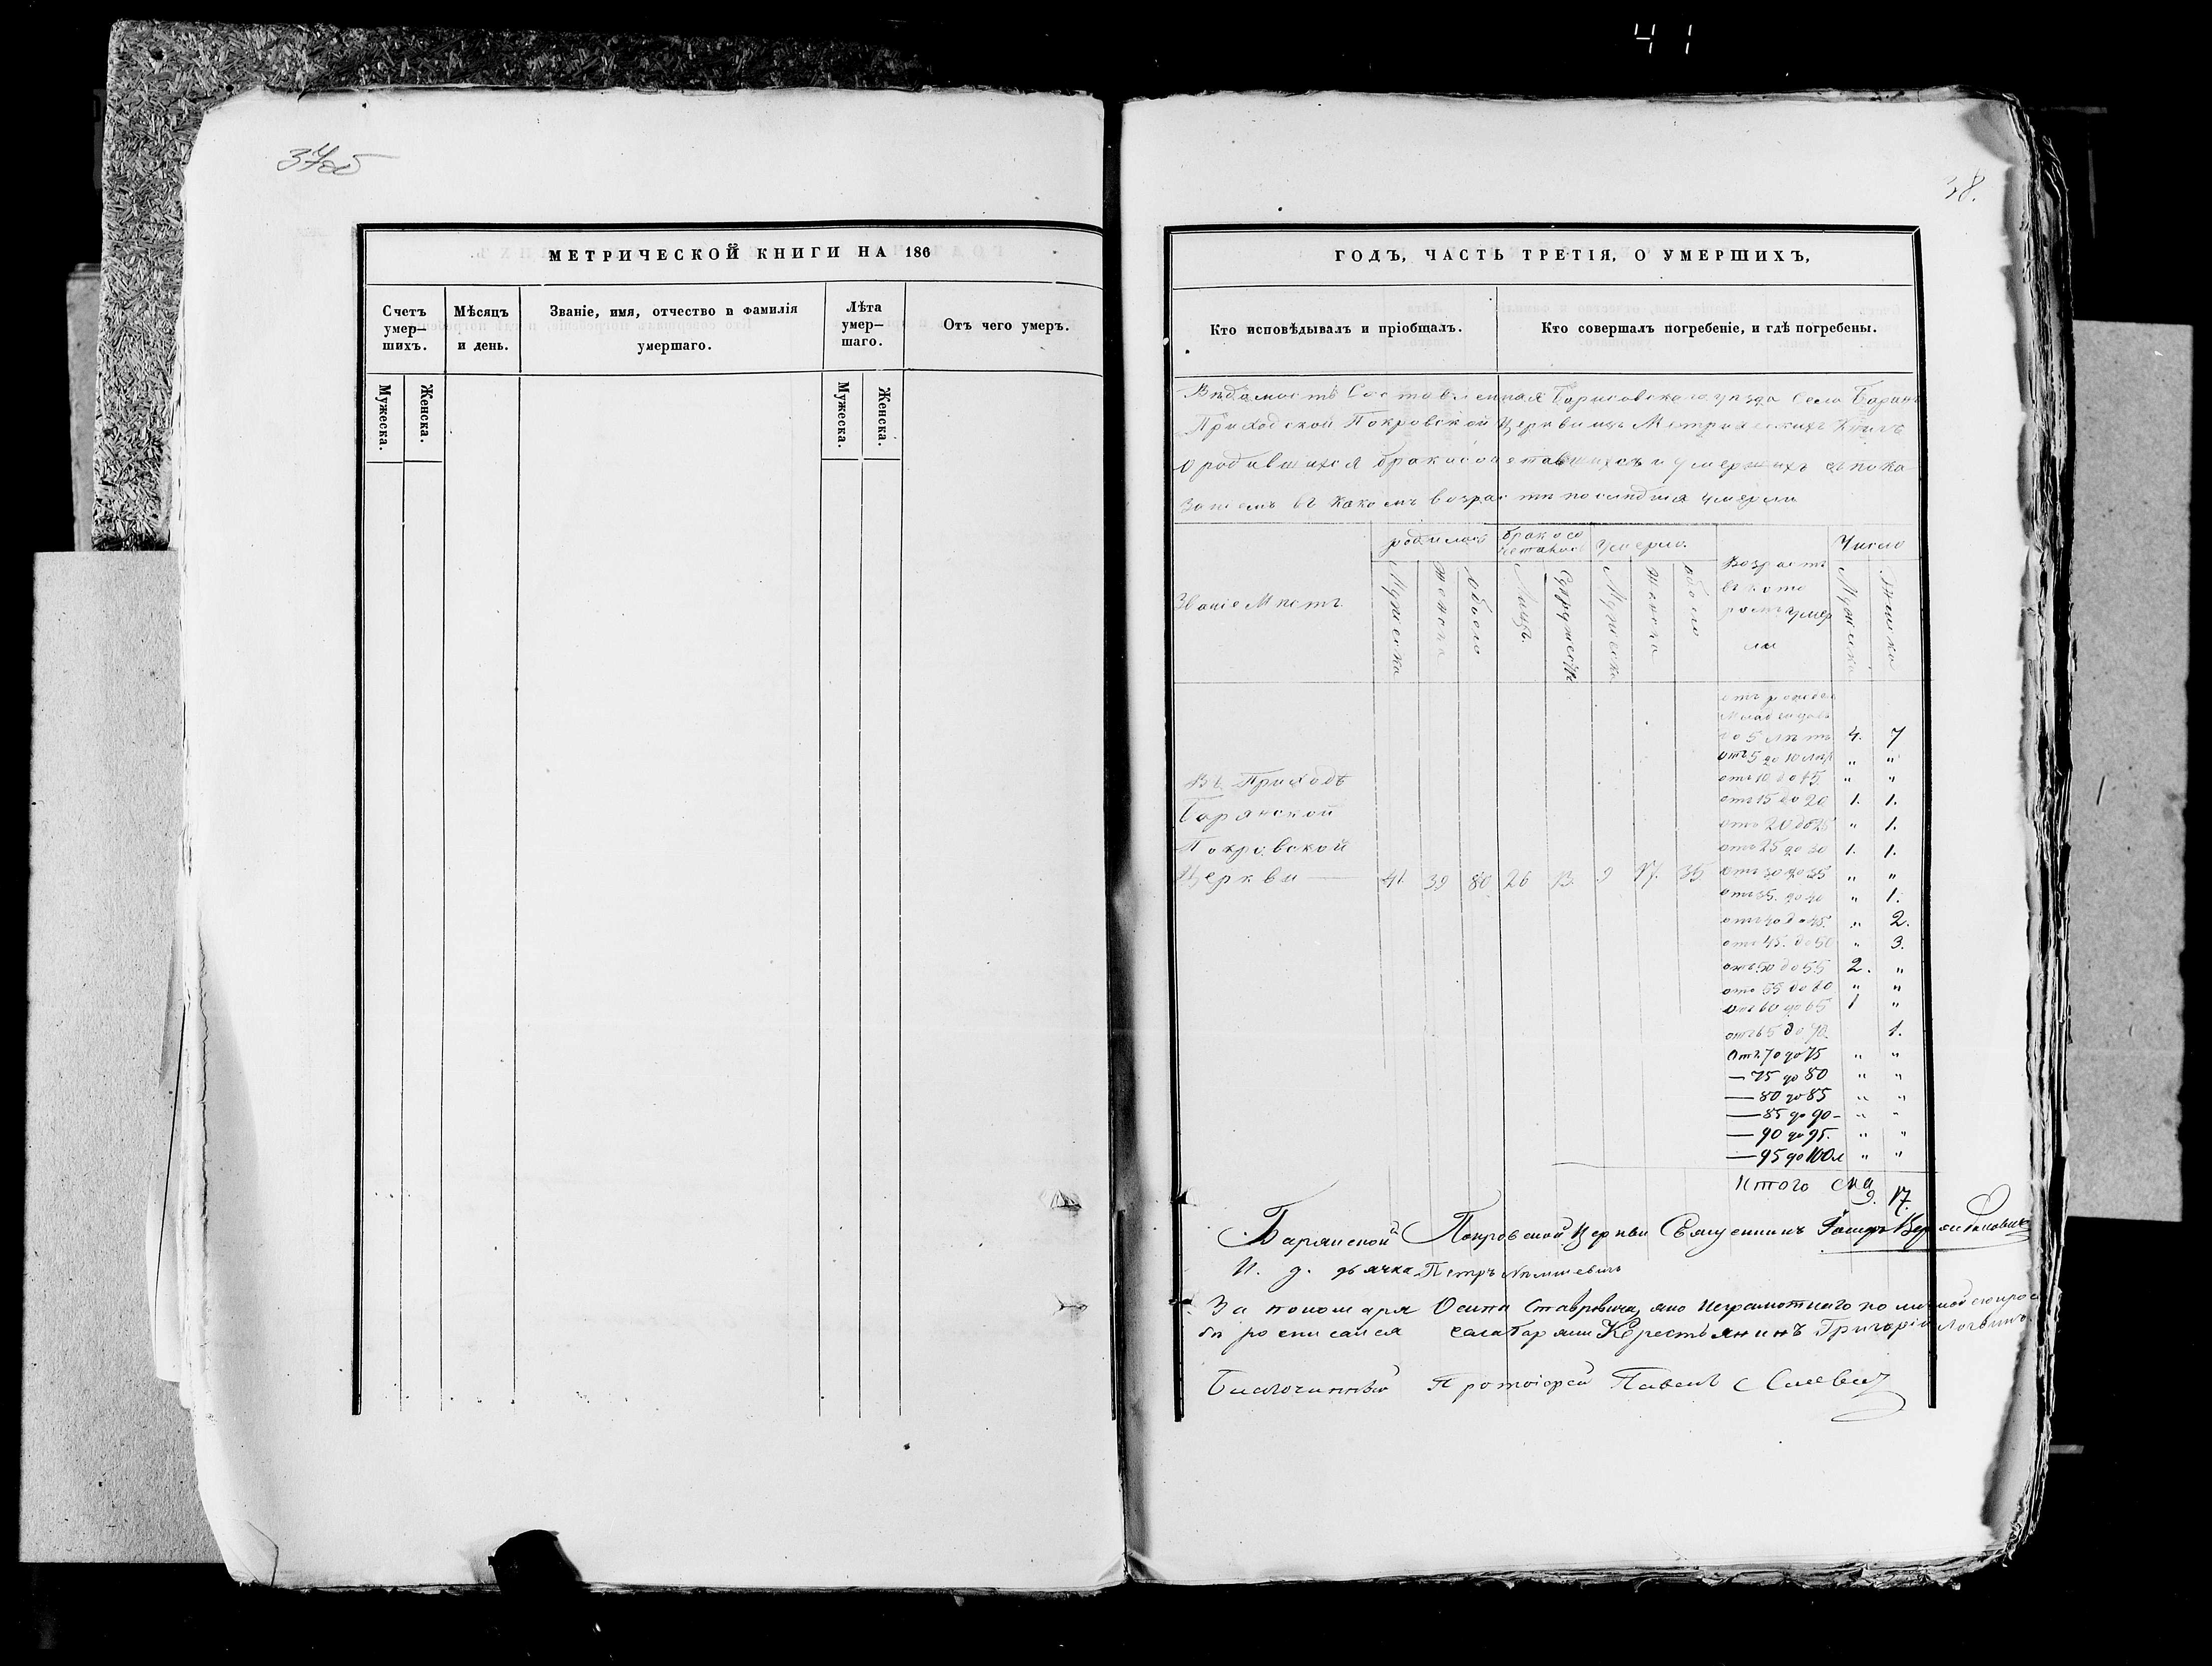 41
37об
МЕТРИЧЕСКОЙ КНИГИ НА 186
Счетъ умер–шихъ.
Мѣсяцъ и день.
Званіе, имя, отчество и фамилія умершаго.
Лѣта умер–шаго.
Отъ чего умеръ.
Мужеска.
Женска.
Мужеска.
Женска.
38.
ГОДЪ, ЧАСТЬ ТРЕТІЯ, О УМЕРШИХЪ,
Кто исповѣдывалъ и пріобщалъ.
Кто совершалъ погребеніе, и гдѣ погребены.
Вѣдомость Составленная Борисовскаго уѣзда Села Баранъ
Приходской Покровской Церкви изъ Метрическихъ Книгъ
о родившихся бракосочетавшихся и умершихъ съ пока
заніемъ въ какомъ возрастѣ послѣднія умерли
Званіе Мѣстъ.
родилось
бракосо
четалось
Умерло.
Возрастъ
въ кото
ромъ умер
ли
Число
Мужеска
Женска
Обоего
Лицъ.
Супружествъ
Мужеска
Женска
Обоего
Мужеска
Женска
Въ Приходѣ
Барянской
Покровской
Церкви — 41. 39 80 26 13. 9 17. 35
до 5 лѣтъ 4. 7
отъ 5 до 10 лѣт „ „
отъ 10 до 15. „ „
отъ 15 до 20 1. 1.
отъ 20 до 25 „ 1.
отъ 25 до 30 1. 1.
отъ 30 до 35 „ „
отъ 35. до 40 „ 1.
отъ 40 до 45. „ 2.
отъ 45. до 50 „ 3.
отъ 50 до 55 2. „
отъ 55 до 60 „ „
отъ 60 до 65 1 „
отъ 65 до 70. 1.
Отъ 70 до 75 „ „
— 75 до 80 „ „
— 80 до 85 „ „
— 85 до 90 – „ „
— 90 до 95. „ „
— 95 до 100 л „ „
Итого 9. 17.
Барянской Покровской Церкви Священникъ
И. д. дьячка Петръ
За пономаря Осипа Ставровича, яко неграмотнаго по личной его прось
бѣ росписался села Баряни Крестьянинъ Григорій
Благочинный Протоіерей Павелъ